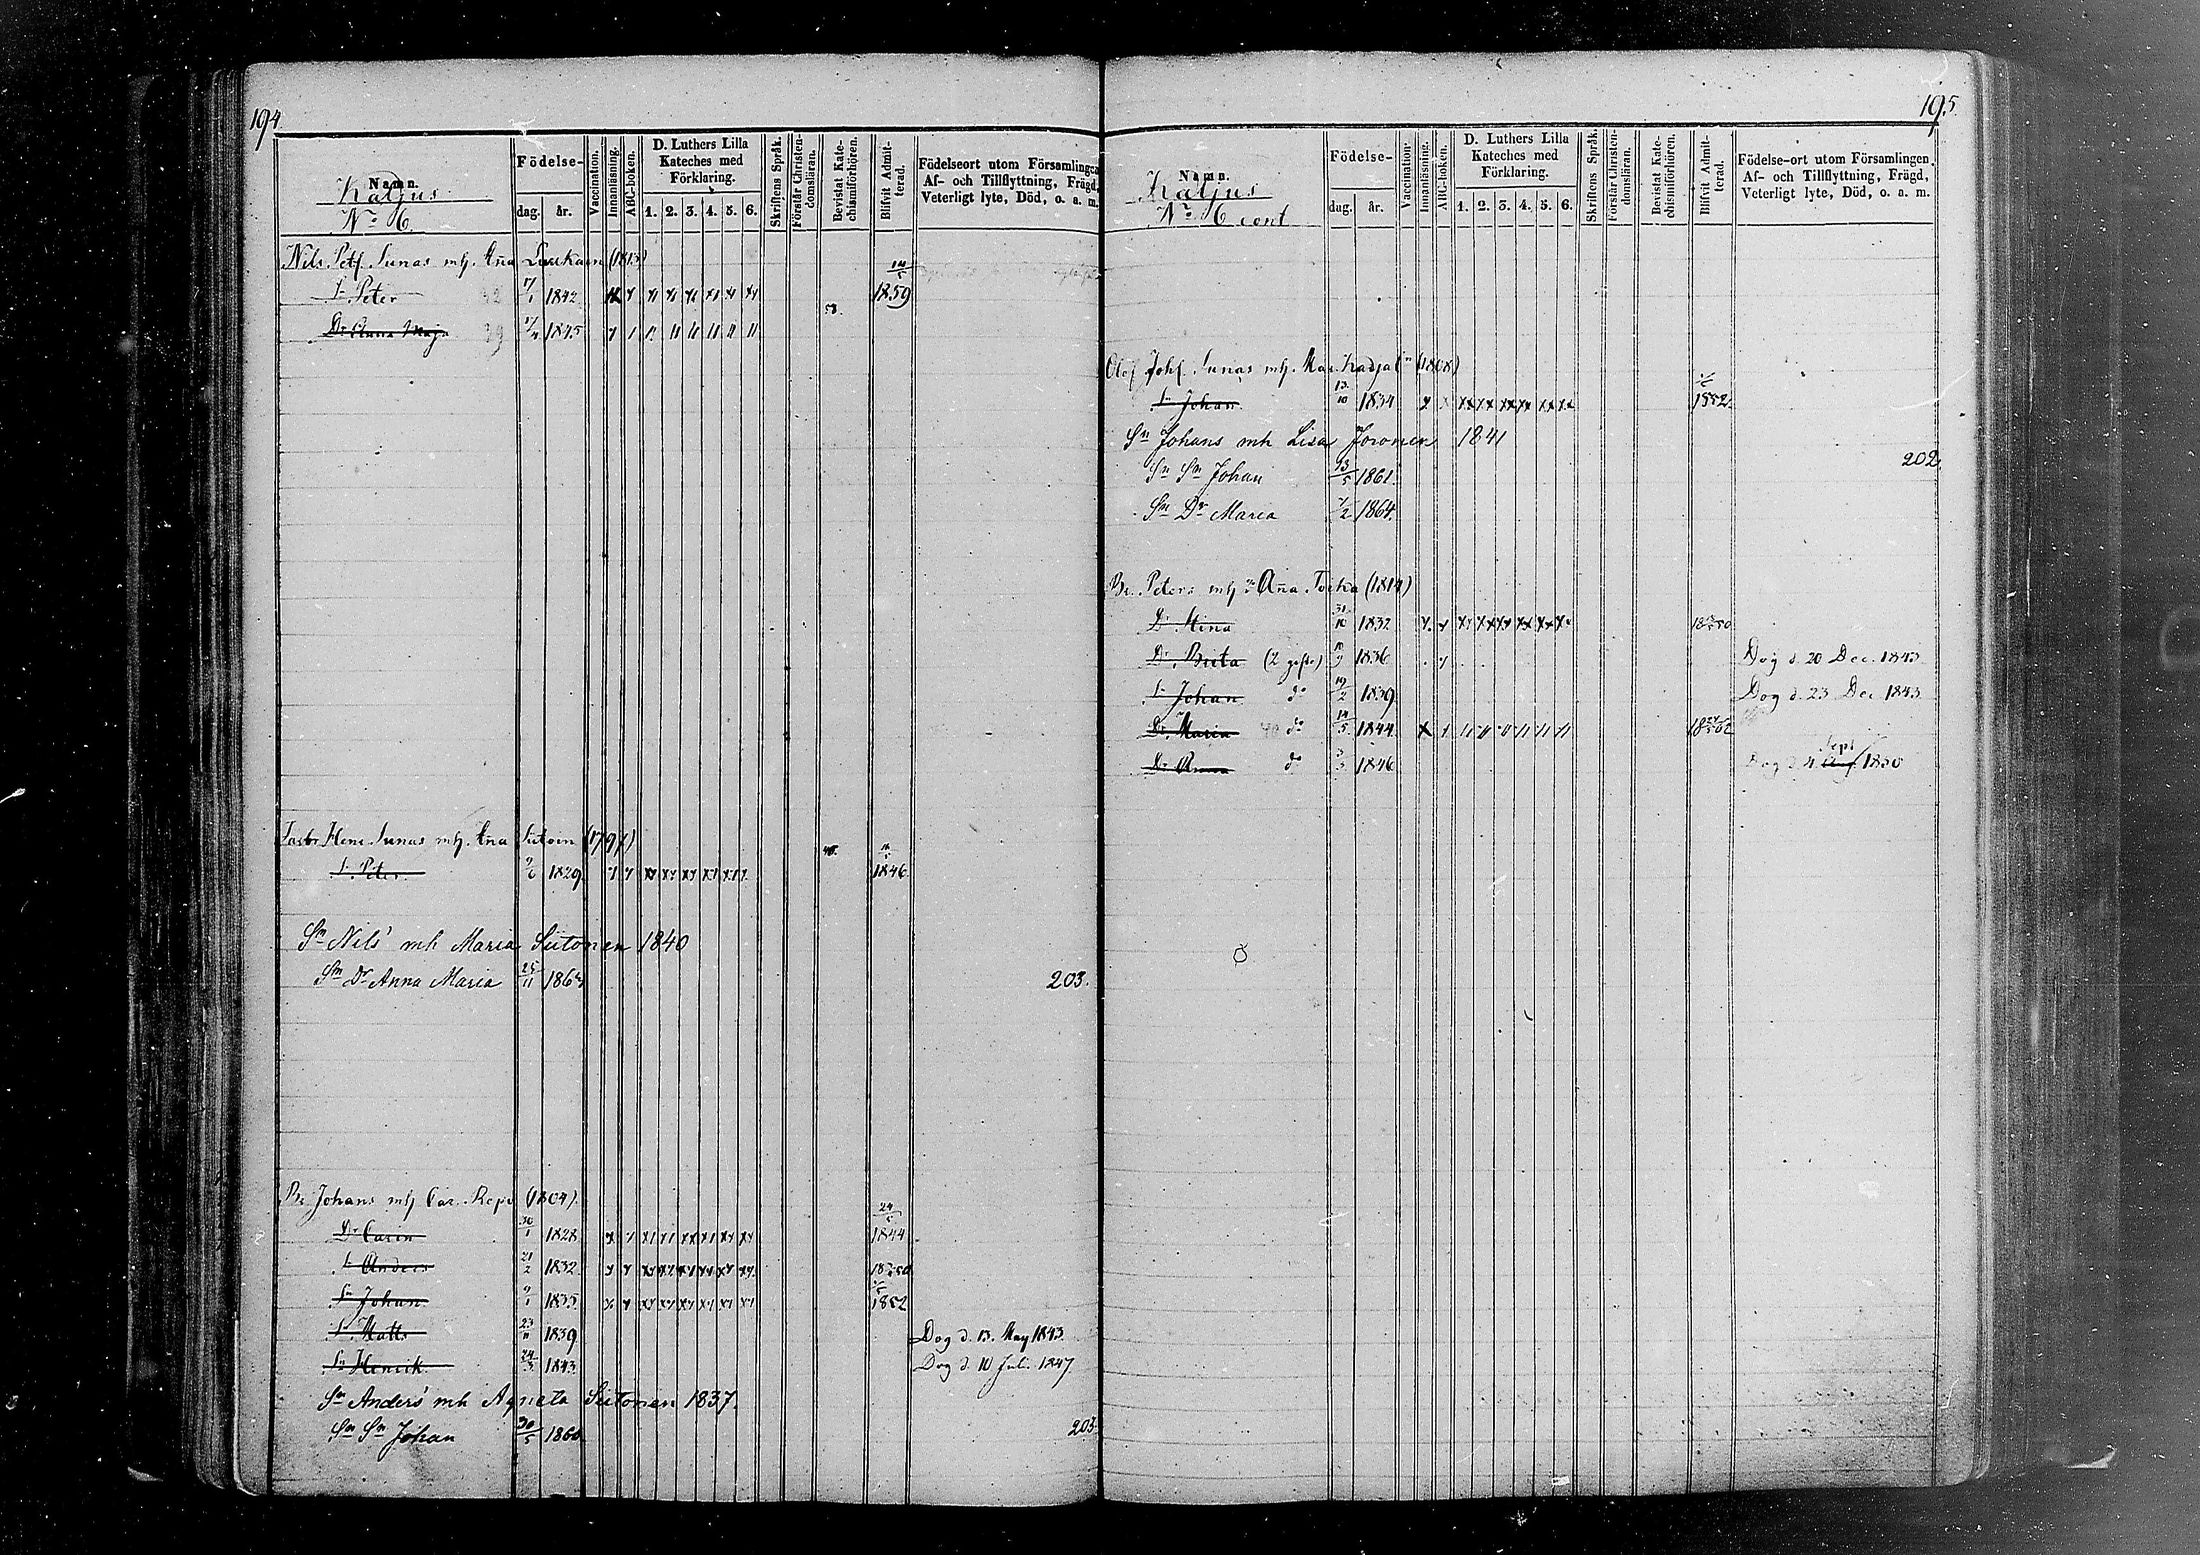 194.
Namn.
Födelse-
dag. år.
Vaccination.
Innanläsning.
ABC-boken.
D. Luthers Lilla
Kateches med
Förklaring.
1. 2. 3. 4. 5. 6.
Skriftens Språk.
Förstår Christen-
domsläran.
Bevistat Kate-
chismiförhören.
Blifvit Admit-
terad.
Födelseort utom Församlingen
Af- och Tillflyttning, Frägd,
Veterligt lyte, Död, o. a. m.
Katjus
No 6.
Nils Petf. Sunas mh. Aña (1813)
Sn Peter 17/1 1842 1859
58.
Dr Anna Maja 1845
Henr. Sunas mh. Aña (1797)
Sn Peter 1829 1846
Sn Nils' mh Maria Siitonen 1840
Sn Dr Anna Maria 25/11 186
203.
Br. Johans mh Car. Repo (1804).
Dr Carin 30/1 1828 24/5 1844
Sn Anders 21/2 1832
Sn Johan 9/1 1835 1852
Sn Matts 23/11 1839 Dog d. 13. May 1843
Sn Henrik 24/3 1843 Dog d. 10 Juli 1847
Sn Anders' mh Agneta Siitonen 1837.
Sn Sn Johan 30/5 1860
203.
195.
Namn.
Födelse-
dag. år.
Vaccination
Innanläsning.
ABC-boken.
D. Luthers Lilla
Kateches med
Förklaring.
1. 2. 3. 4. 5. 6.
Skriftens Språk.
Förstår Christen-
domsläran.
Bevistat Kate-
chismiförhören.
Blifvit Admit-
terad.
Födelse-ort utom Församlingen.
Af- och Tillflyttning, Frägd,
Veterligt lyte, Död, o. a. m.
Katjus
No 6 cont
Olof Johf. Sunas mh. Mar. (1808)
Sn Johan 13/10 1834 1852.
Sn Johans mh Lisa Joronen 1841
202
Sn Sn Johan 13/5 1861
Sn Dr Maria 7/2 1864.
Br. Peters mh Aña (1814)
Dr Stina 31/10 1832
Dr Brita (2 gifte) 1836 Dog d. 20 Dec. 1843
Sn Johan do 19/2 1839 Dog d. 23 Dec 1843
Dr Maria do 14/5 1844
Dr Anna do 3/3 1846 Dog d. 4 Sept 1850